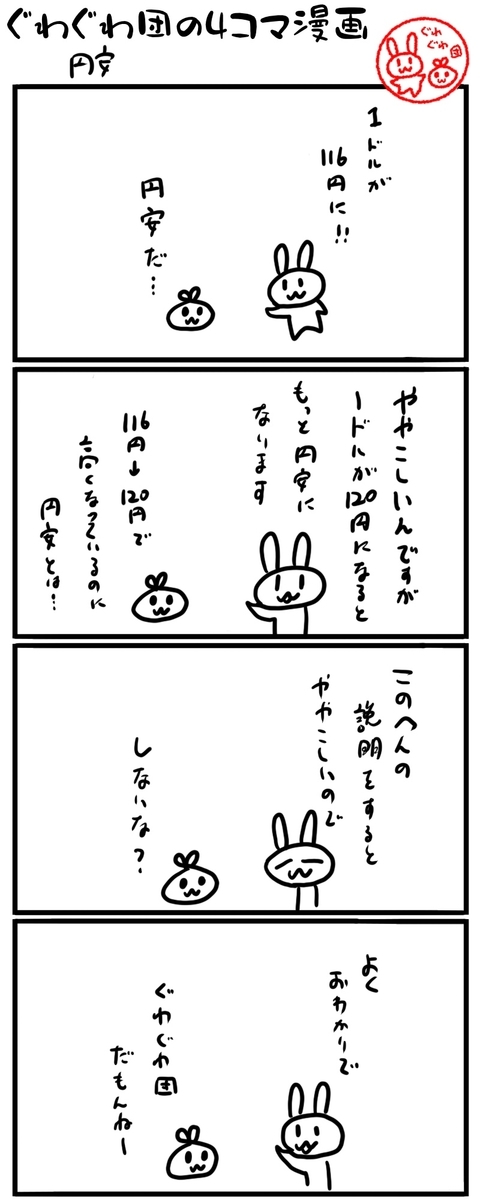 ぐわぐわ団の4コマ漫画
円安
ぐわ
ぐわ
団
1ドルが
116円に!!
円安だ…
ややこしいんですが
1ドルが120円になると
もっと円安に
なります
116円→120円で
高くなっているのに
円安とは…
このへんの
説明をすると
ややこしいので
しないな?
よく
おわかりで
ぐわぐわ団
だもんねー